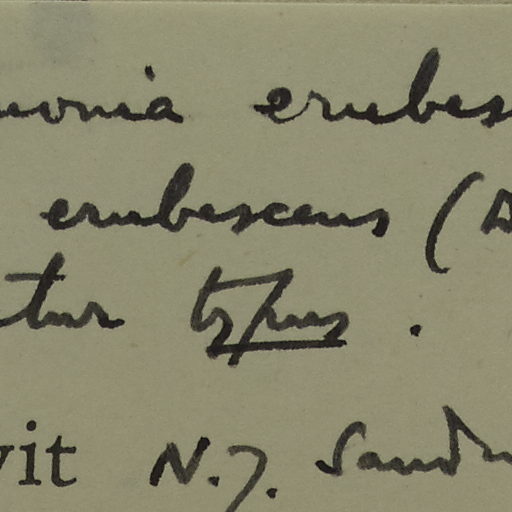 monia erubes
erubescens (A
tur typus.
vit N.J. Sandw